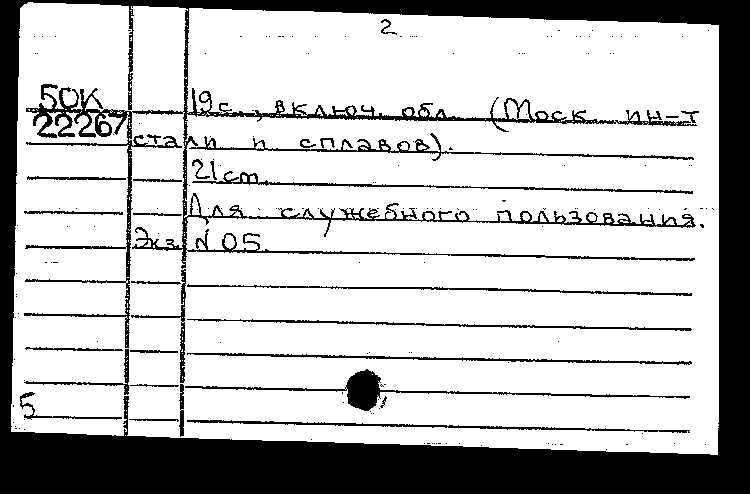 2
50К
22267
19 с., включ. обл. (Моск ин-т
стали и сплавов).
21 cm.
Для служебного пользования.
Экз. N 05.
5